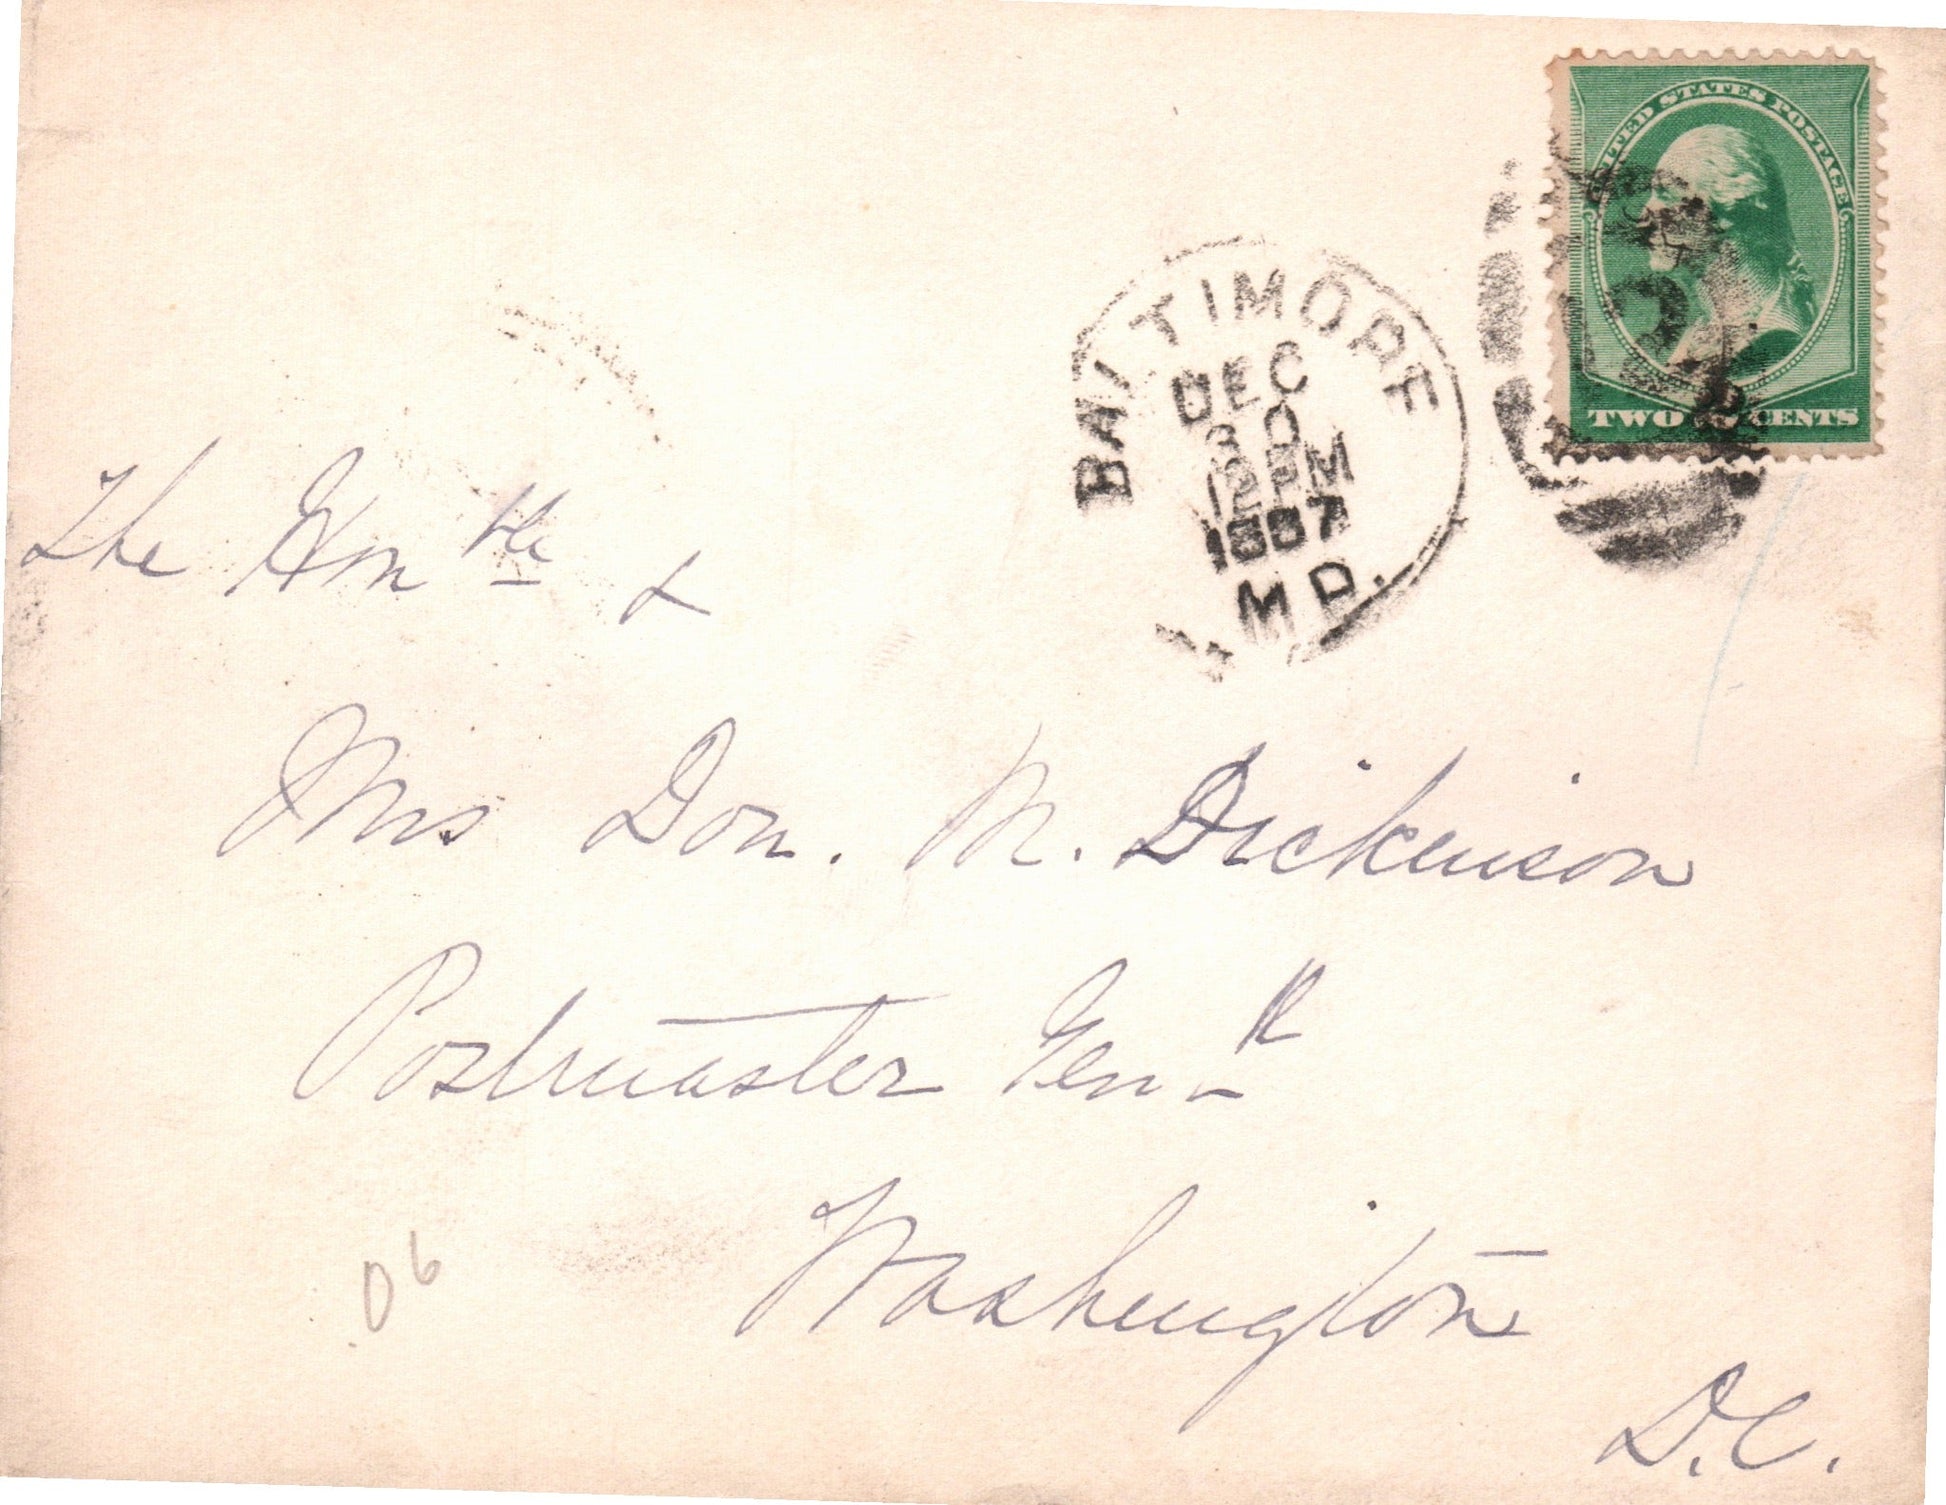 UNITED STATES POSTAGE
TWO 2 CENTS
BALTIMORE
DEC
30
12 PM
1887
MD.
The Hon ble &
Mrs Don. M. Dickenson
Postmaster Gen l
Washington
D.C.
D6